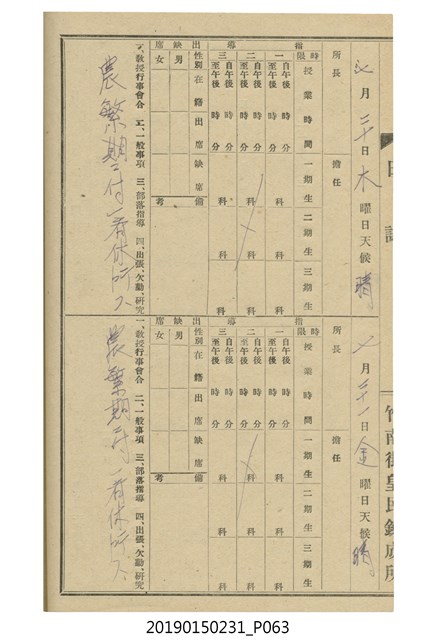 日誌
七月二十日木曜日天候晴
所長
擔任
指導
時限
授業時間
一期生
二期生
三期生
一
自午後 時 分
至午後 時 分
科
科
科
二
自午後 時 分
至午後 時 分
科
科
科
三
自午後 時 分
至午後 時 分
科
科
科
出缺席
性別
在籍
出席
缺席
備考
男
女
一、教授行事會合 二、一般事項 三、部落指導 四、出張、欠勤、研究
農繁期ニ付一看休所ス
竹南街皇民鍊成所
七月二十一日金曜日天候晴
所長
擔任
指導
時限
授業時間
一期生
二期生
三期生
一
自午後 時 分
至午後 時 分
科
科
科
二
自午後 時 分
至午後 時 分
科
科
科
三
自午後 時 分
至午後 時 分
科
科
科
出缺席
性別
在籍
出席
缺席
備考
男
女
一、教授行事會合 二、一般事項 三、部落指導 四、出張、欠勤、研究
農繁期ニ付一看休所ス
20190150231_P063